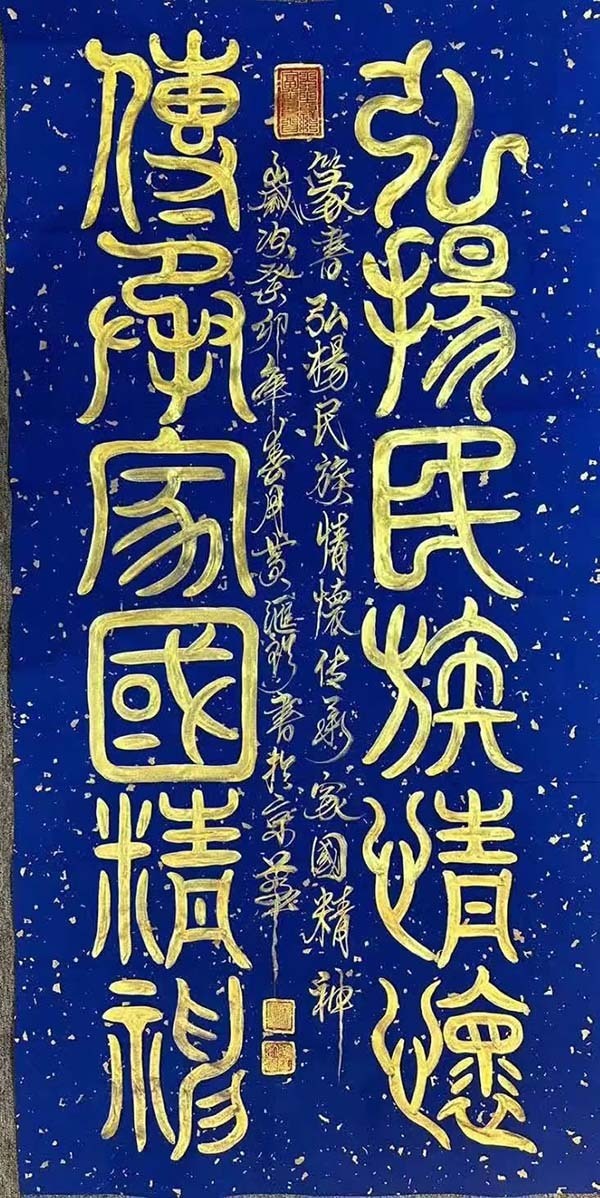 弘揚民族情懷
篆書弘揚民族情懷传承家國精神
歲次癸卯年春月黄滙書於京華
傳承家國精神